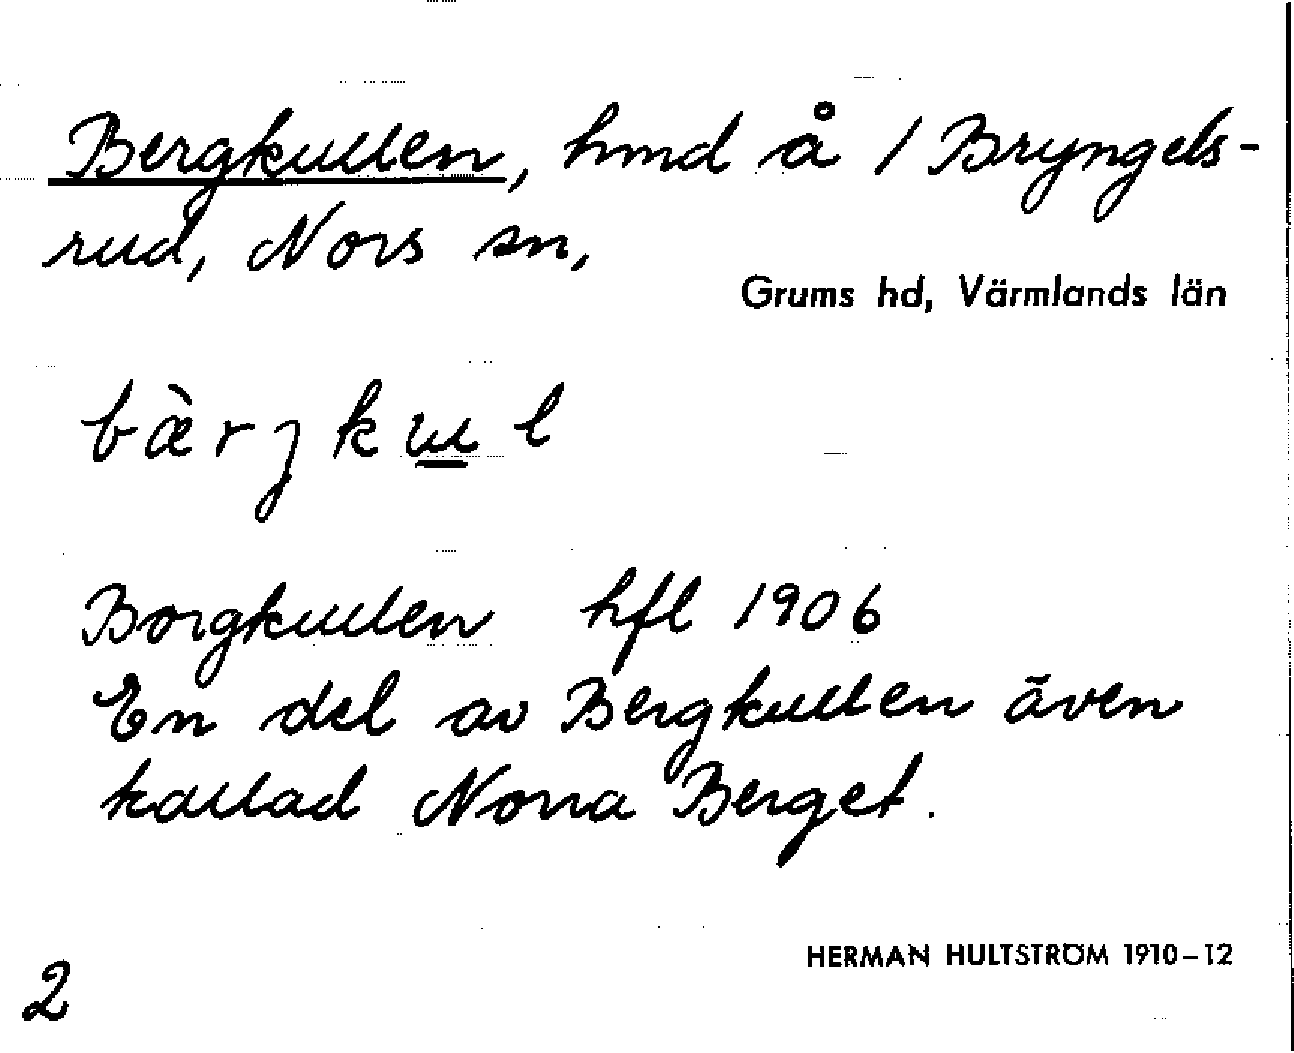 Bergkullen, hmd å 1 Bryngels-
rud, Nors sn,
Grums hd, Värmlands län
bærjkul
Borgkullen hfl 1906
En del av Bergkullen även
kallad Norra Berget.
HERMAN HULTSTRÖM 1910–12
2